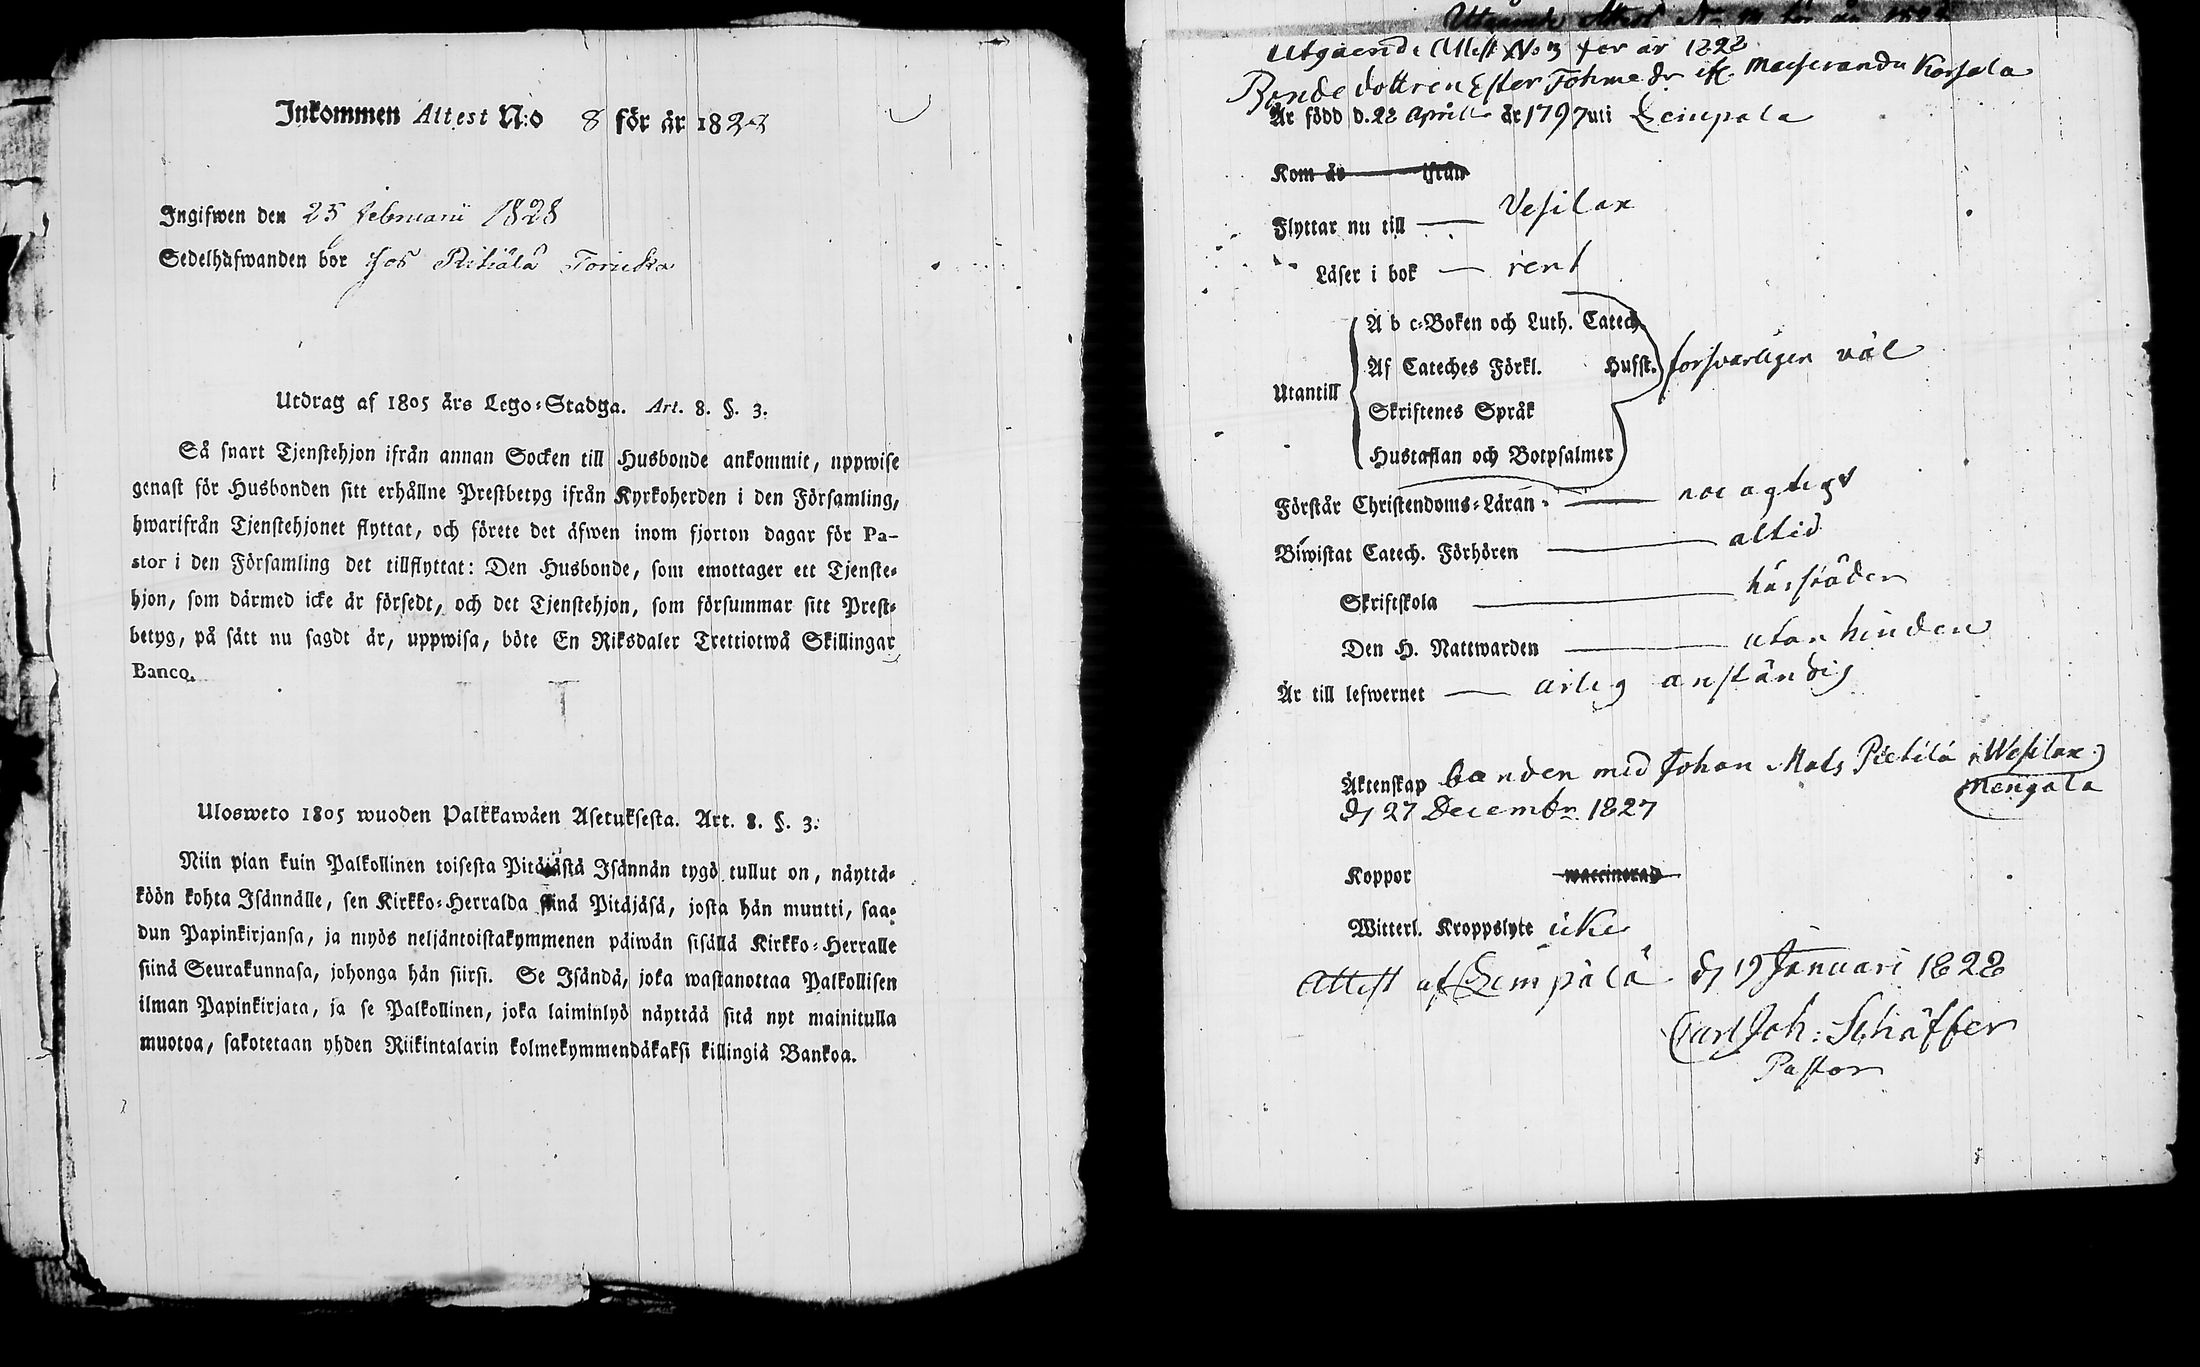 Inkommen Attest N:o 8 för år 1828
Ingifwen den 25 Februarii 1828
Sedelhafwanden bor hos Pietilä
Utdrag af 1805 års Lego-Stadga. Art. 8. §. 3.
Så snart Tjenstehjon ifrån annan Socken till Husbonde ankommit, uppwise
genast för Husbonden sitt erhållne Prestbetyg ifrån Kyrkoherden i den Församling,
hwarifrån Tjenstehjonet flyttat, och förete det äfwen inom fjorton dagar för Pa-
stor i den Församling det tillflyttat: Den Husbonde, som emottager ett Tjenste-
hjon, som därmed icke är försedt, och det Tjenstehjon, som försummar sitt Prest-
betyg, på sätt nu sagdt är, uppwisa, böte En Riksdaler Trettiotwå Skillingar
Banco.
Ulosweto 1805 wuoden Palkkawäen Asetuksesta. Art. 8. §. 3.
Niin pian kuin Palkollinen toisesta Pitäjästä Isännän tygö tullut on, näyttä-
köön kohta Isännälle, sen Kirkko-Herralda siinä Pitäjäsä, josta hän muutti, saa-
dun Papinkirjansa, ja myös neljäntoistakymmenen päiwän sisällä Kirkko-Herralle
siinä Seurakunnasa, johonga hän siirsi. Se Isändä, joka wastanottaa Palkollisen
ilman Papinkirjata, ja se Palkollinen, joka laiminlyö näyttää sitä nyt mainitulla
muotoa, sakotetaan yhden Riikintalarin kolmekymmendäkaksi killingiä Bankoa.
Utgående Attest No 3 för år 1828
Bonde dottren Ester Johmsdr Korsala
Är född d. 22 Aprill år 1797 uti Lempala
Kom år ifrån
Flyttar nu till Vesilax
Läser i bok rent
A b c-Boken och Luth. Catech.
Af Cateches Förkl. Husst. försvarligen väl
Utantill
Skriftenes Språk
Hustaflan och Botpsalmer
Förstår Christendoms-Läran nöjagtigt
Biwistat Catech. Förhören altid
Skriftskola härstädes
Den H. Nattwarden utan hinder
Är till lefwernet ärlig anständig
Äktenskap bunden med Johan Mats Pietilä i Wesilax
Mengala
d 27 Decembr 1827
Koppor waccinerad
Witterl. Kroppslyte icke
Attest af Lempälä d 19 Januari 1828
Carl Joh: Schäffer
Pastor